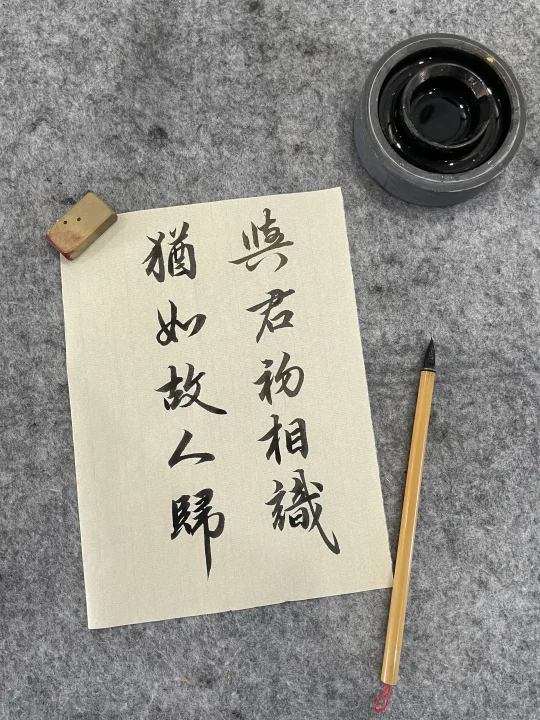 與君初相識
猶如故人歸